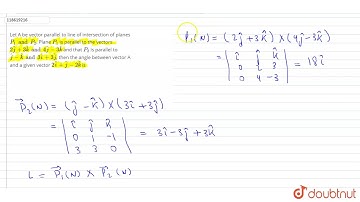 116619216
Let A be vector parallel to line of intersection of planes
P₁ and P₂. Plane P₁ is parallel to the vectors
2ĵ + 3k̂ and 4ĵ - 3k̂ and that P₂ is parallel to
ĵ - k̂ and 3î + 3ĵ, then the angle between vector A
and a given vector 2î + ĵ - 2k̂ is
P₁(N) = (2ĵ + 3k̂) × (4ĵ - 3k̂)
= | î ĵ k̂
0 2 3
0 4 -3 | = 18î
P⃗₂(N) = (ĵ - k̂) × (3î + 3ĵ)
= | î ĵ k̂
0 1 -1
3 3 0 | = 3î - 3ĵ + 3k̂
L = P⃗₁(N) × P⃗₂(N)
doubtnut